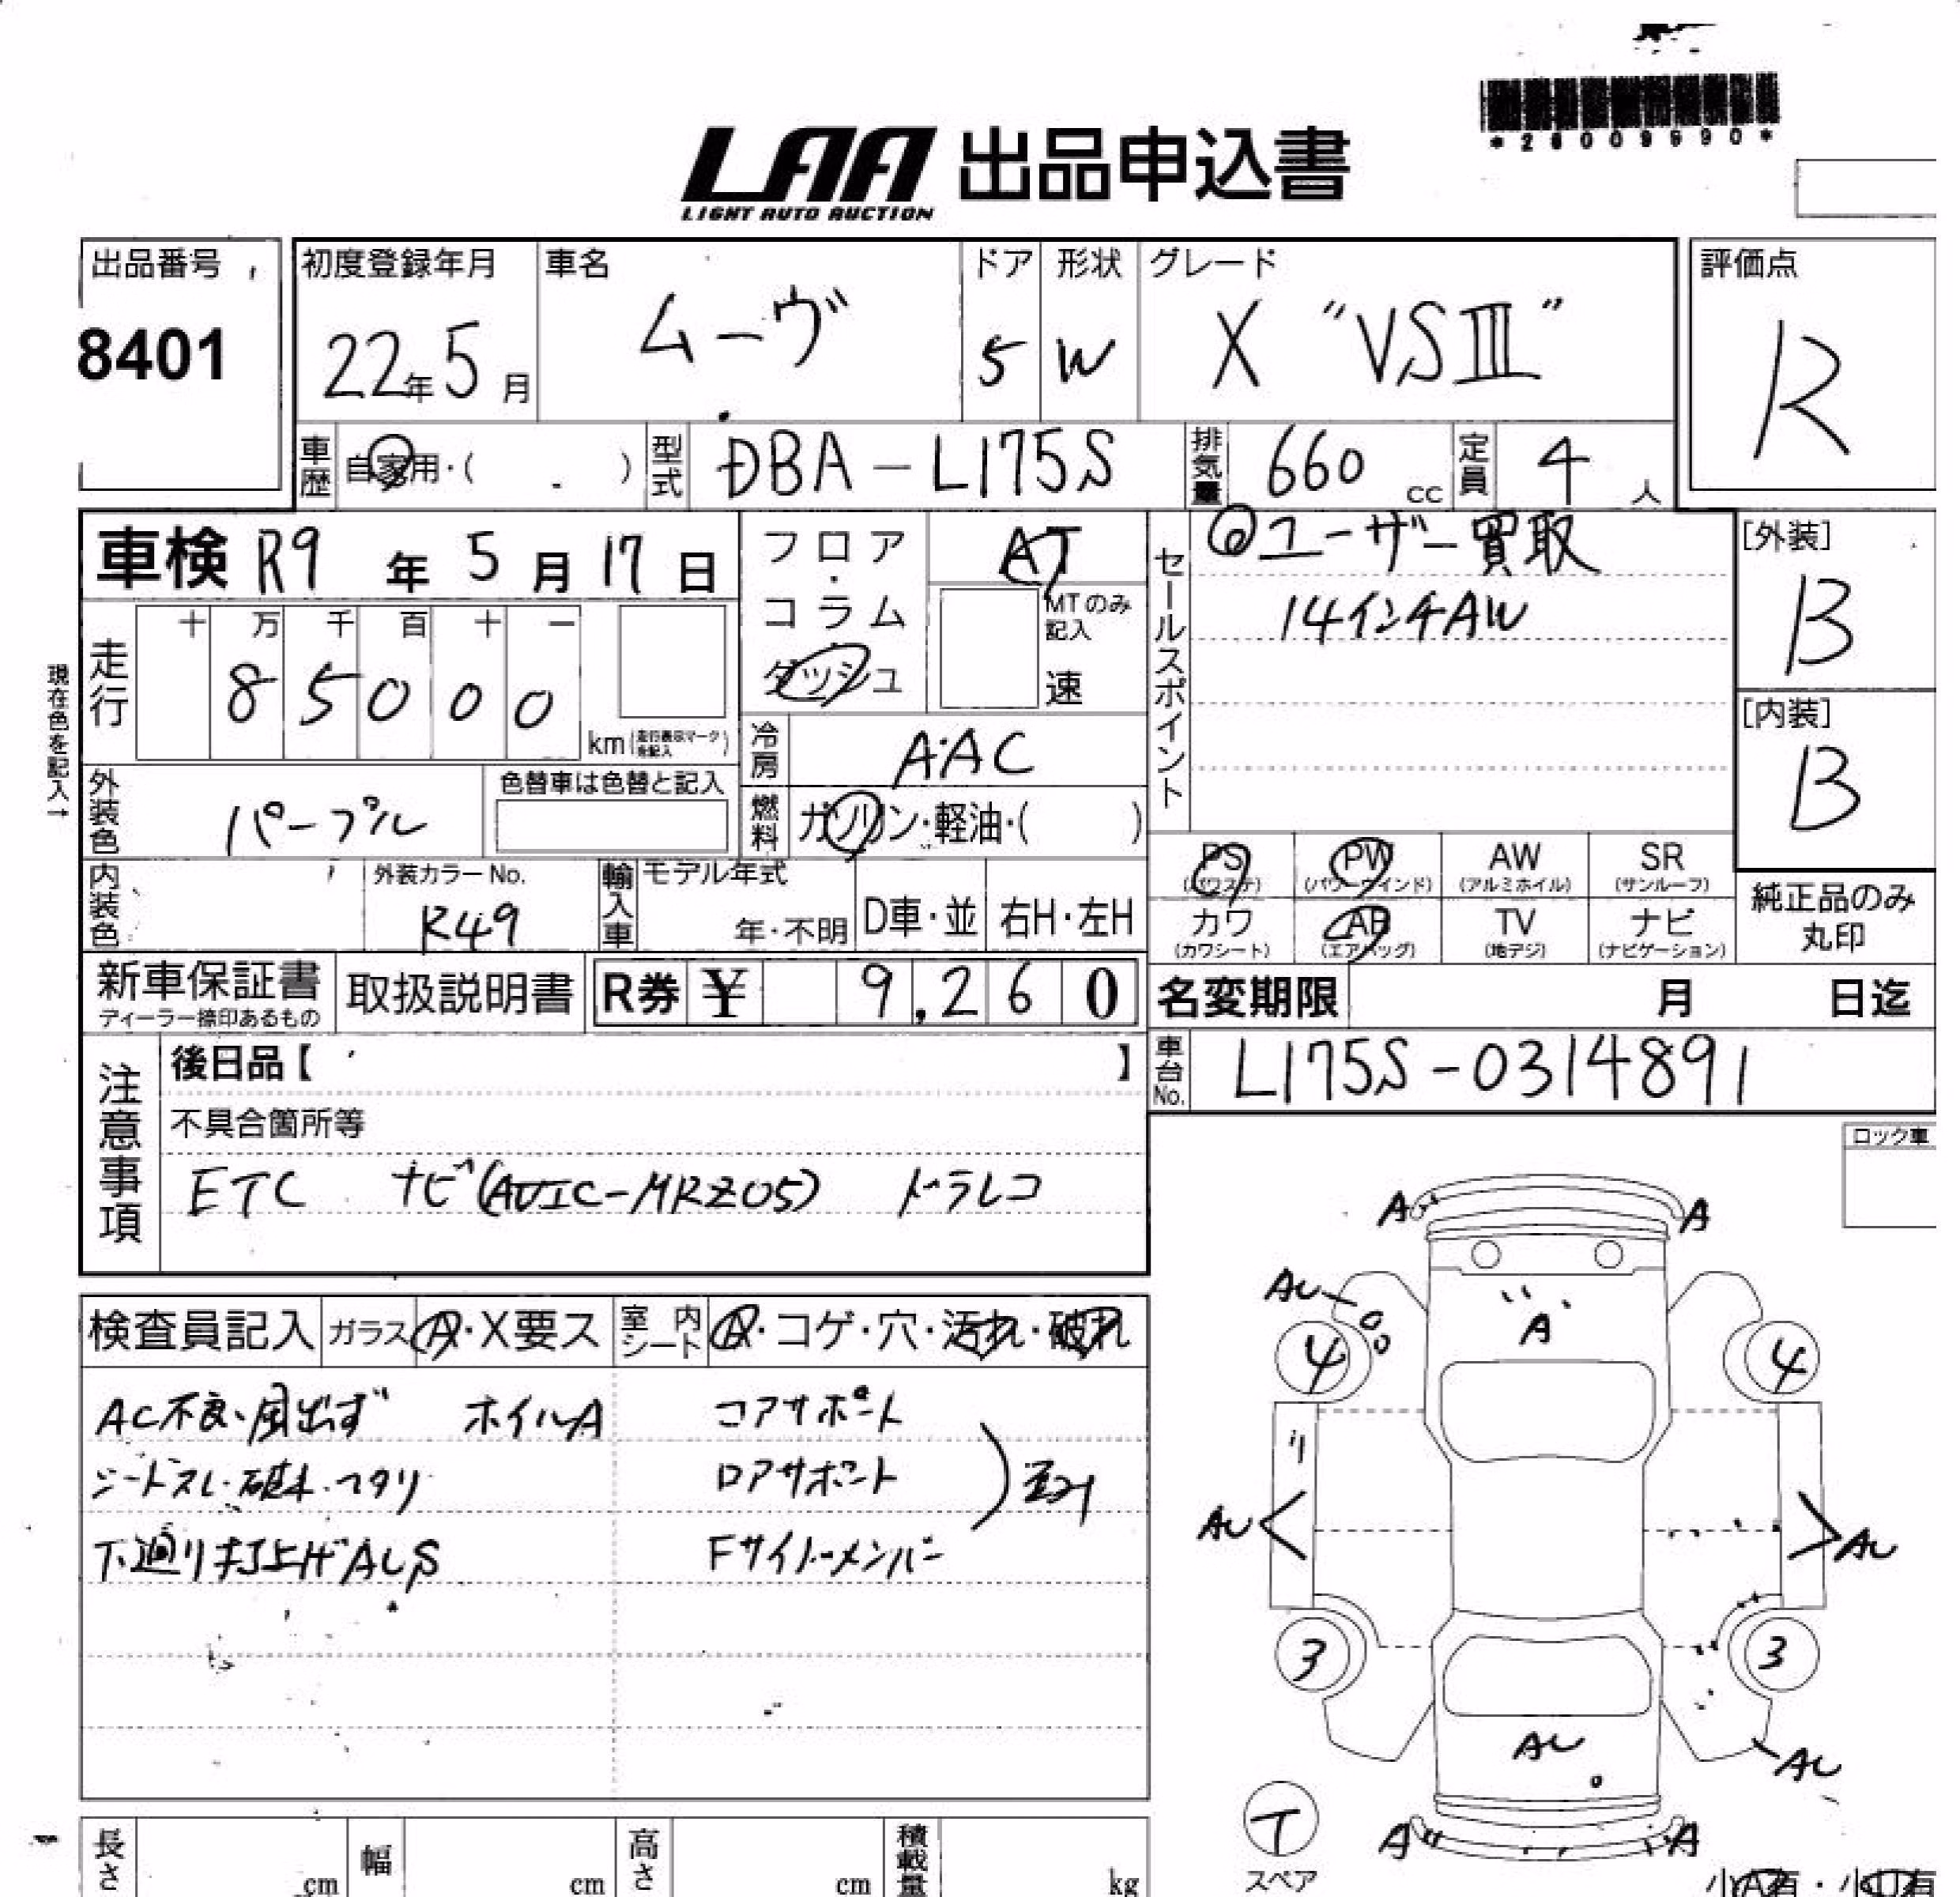 *26009990*
LAA 出品申込書
LIGHT AUTO AUCTION
出品番号 初度登録年月 車名 ドア 形状 グレード 評価点
8401 22年5月 ムーヴ 5 W X "VSⅢ" R
車歴 自家用・( ) 型式 DBA-L175S 排気量 660 cc 定員 4 人
車検 R9 年 5 月 17 日 フロア・コラム・ダッシュ AT セールスポイント ◎ユーザー買取 [外装] B
MTのみ記入 速 14インチAW
現在色を記入→
走行 十 万 千 百 十 一
8 5 0 0 0 km (走行表示マークを記入) [内装] B
冷房 AAC
外装色 パープル 色替車は色替と記入 燃料 ガソリン・軽油・( )
PS (パワステ) PW (パワーウインド) AW (アルミホイル) SR (サンルーフ)
内装色 外装カラーNo. R49 輸入車 モデル年式 年・不明 D車・並 右H・左H
カワ (カワシート) AB (エアバッグ) TV (地デジ) ナビ (ナビゲーション) 純正品のみ丸印
新車保証書 ディーラー捺印あるもの 取扱説明書 R券 ¥ 9,260 名変期限 月 日迄
注意事項 後日品【 】 車台No. L175S-0314891
不具合箇所等
ETC ナビ(AVIC-MRZ05) ドラレコ
ロック車
検査員記入 ガラス A・X要ス 室内シート A・コゲ・穴・汚れ・破れ
AC不良、風出ず ホイルA コアサポート
シートスレ・破れ・ヘタリ ロアサポート
下廻り打上げAUS Fサイドメンバー
A A
AU
A
4 4
AU AU
3 3
AU AU
T
スペア
A A
長さ cm 幅 cm 高さ cm 積載量 kg
小A有・小U有